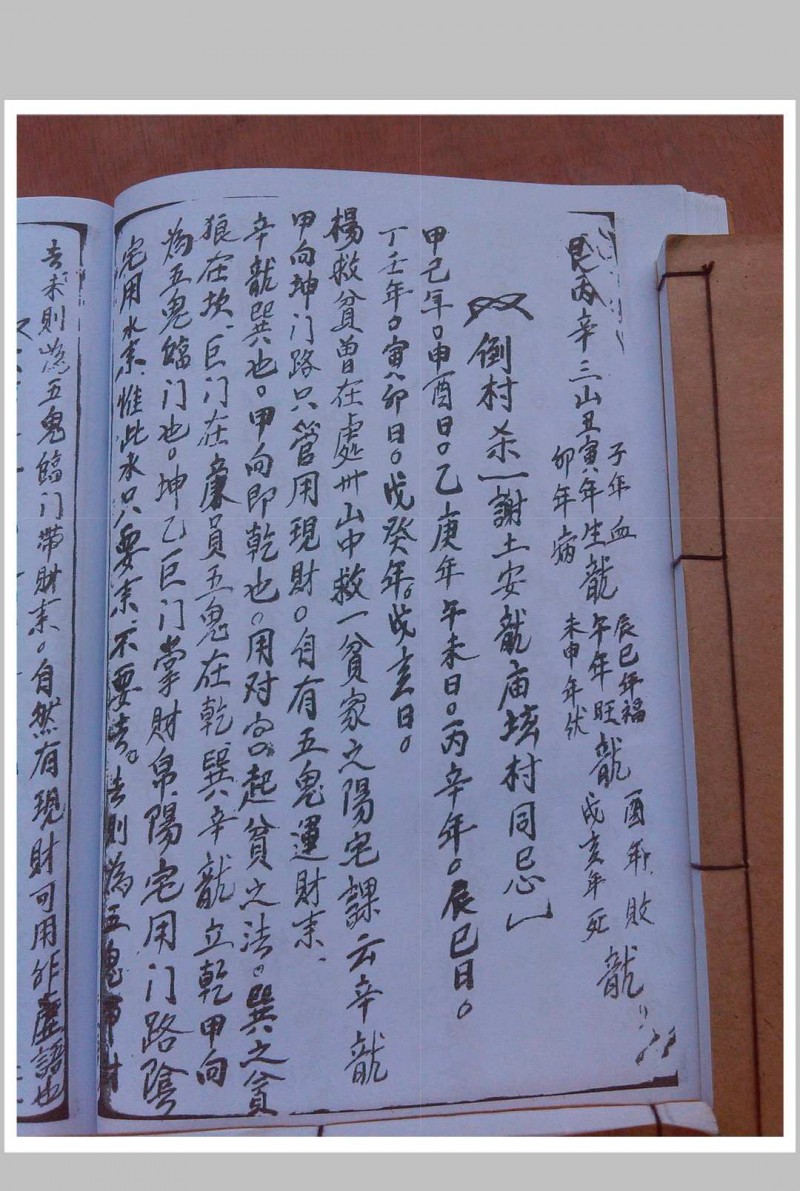 艮丙辛三山丑寅年生龍午年旺龍酉年敗龍
子年血
卯年病
辰巳年福
未申年伏
戌亥年死
倒村杀一謝土安龍庙坟村同忌
甲己年。申酉日。乙庚年午未日。丙辛年。辰巳日。
丁壬年。寅卯日。戊癸年。戌亥日。
楊救貧曾在處卅山中救一貧家之陽宅課云辛龍
甲向坤门路只管用現財。自有五鬼運財来、
辛龍巽也。甲向即乾也。用对宫起貧之法。巽之貧
狼在坎、巨门在 五鬼在乾巽辛龍立乾甲向
為五鬼臨门也。坤乙巨门掌財帛陽宅用门路陰
宅用水来、惟此水只要来、不要去。去則為五鬼帶財
去来則為五鬼臨门帶財来。自然有現財可用非虛語也